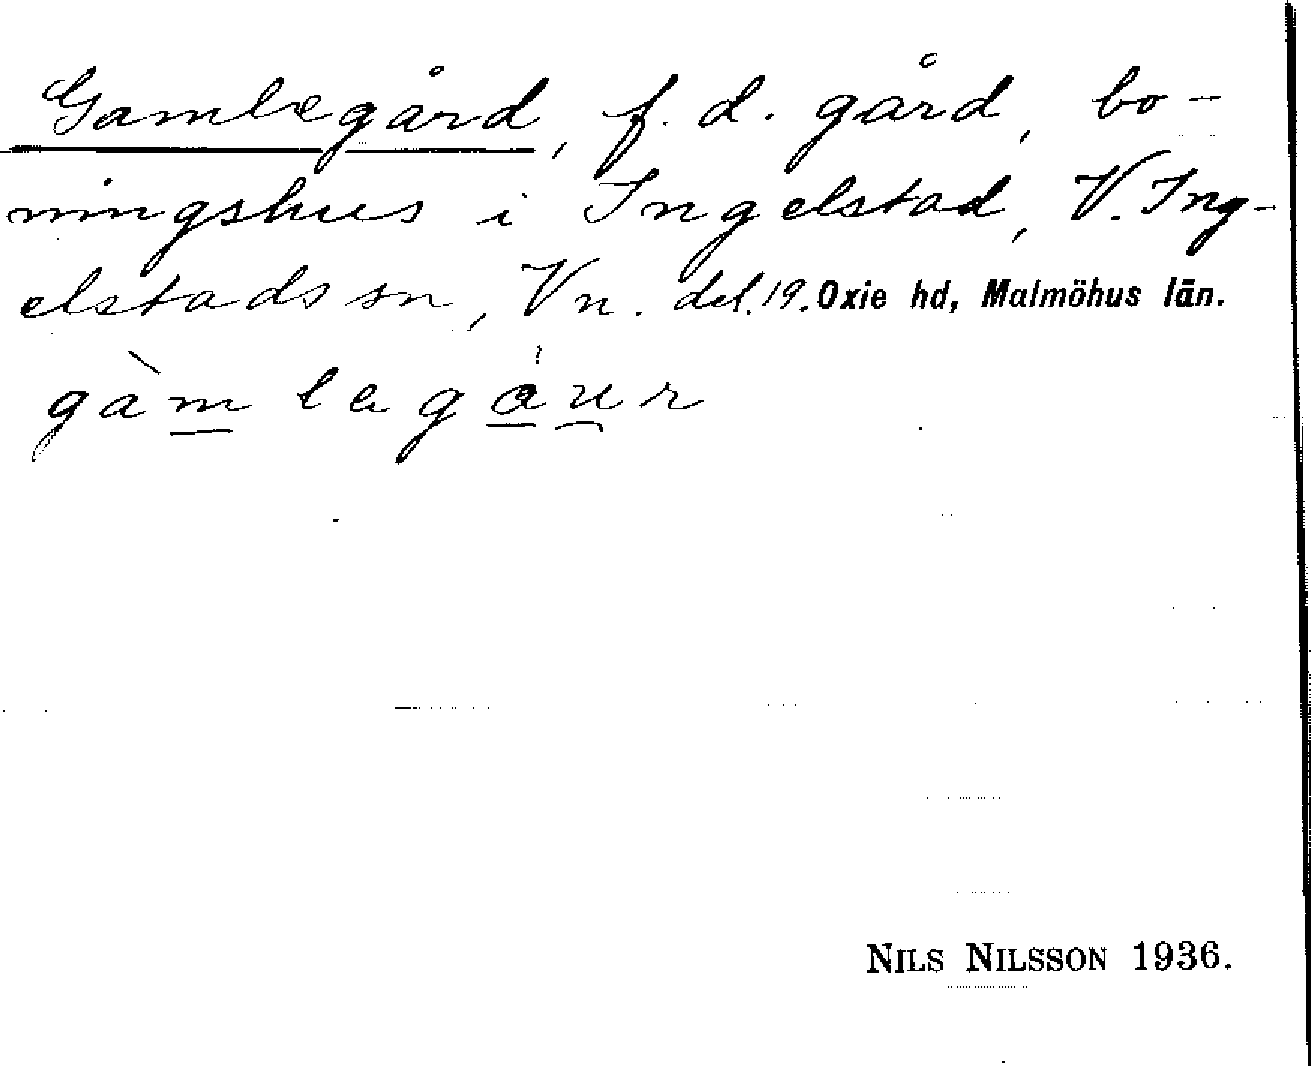 Gamlegård, f. d. gård, bo-
ningshus i Ingelstad, V. Ing-
elstads sn, Vn. del. 19. Oxie hd, Malmöhus län.
gàmlagáur
NILS NILSSON 1936.